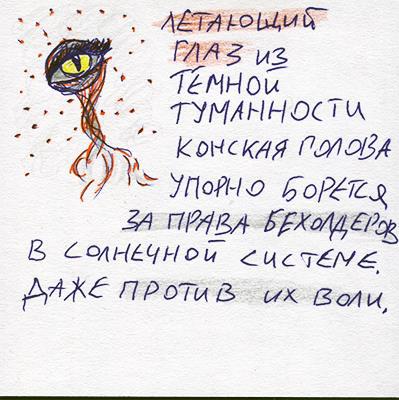 ЛЕТАЮЩИЙ
ГЛАЗ ИЗ
ТЁМНОЙ
ТУМАННОСТИ
КОНСКАЯ ГОЛОВА
УПОРНО БОРЕТСЯ
ЗА ПРАВА БЕХОЛДЕРОВ
В СОЛНЕЧНОЙ СИСТЕМЕ.
ДАЖЕ ПРОТИВ ИХ ВОЛИ.